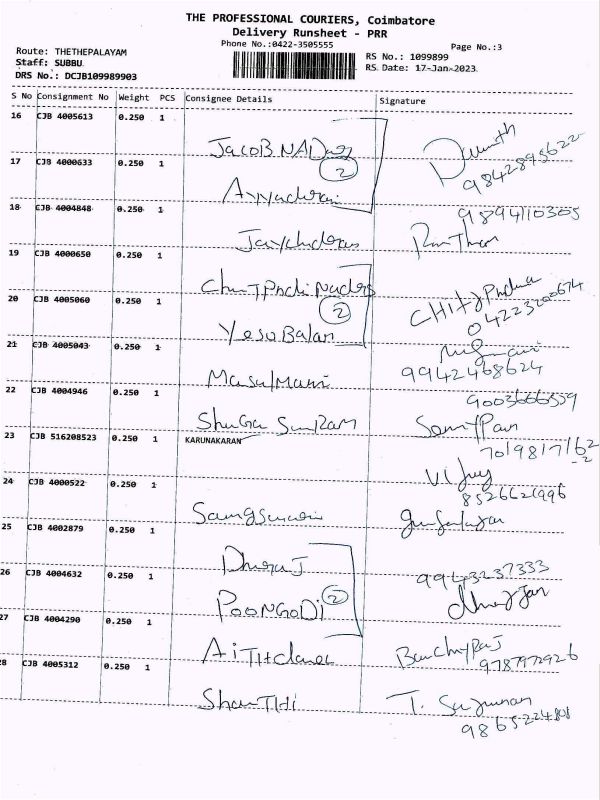 THE PROFESSIONAL COURIERS, Coimbatore
Delivery Runsheet - PRR
Phone No.:0422-3505555 Page No.:3
Route: THETHEPALAYAM RS No.: 1099899
Staff: SUBBU RS Date: 17-Jan-2023
DRS No.: DCJB109989903
S No Consignment No Weight PCS Consignee Details Signature
16 CJB 4005613 0.250 1
JacoB NADar
9842895622
17 CJB 4000633 0.250 1
2
Ayyadurai
9894110305
18 CJB 4004848 0.250 1
19 CJB 4000650 0.250 1
ChitPndi Naders
CHitPndia
04223200674
20 CJB 4005060 0.250 1
2
Yesu Balan
21 CJB 4005043 0.250 1
9942468624
Masalmani
22 CJB 4004946 0.250 1
9003666559
SunRam
23 CJB 516208523 0.250 1 KARUNAKARAN
7019817162
Vijay
8526621996
24 CJB 4000522 0.250 1
25 CJB 4002879 0.250 1
Dhuraj
9943237333
26 CJB 4004632 0.250 1
POONGODi 2
27 CJB 4004290 0.250 1
9787972926
28 CJB 4005312 0.250 1
ShanTHi
T.
9865224808